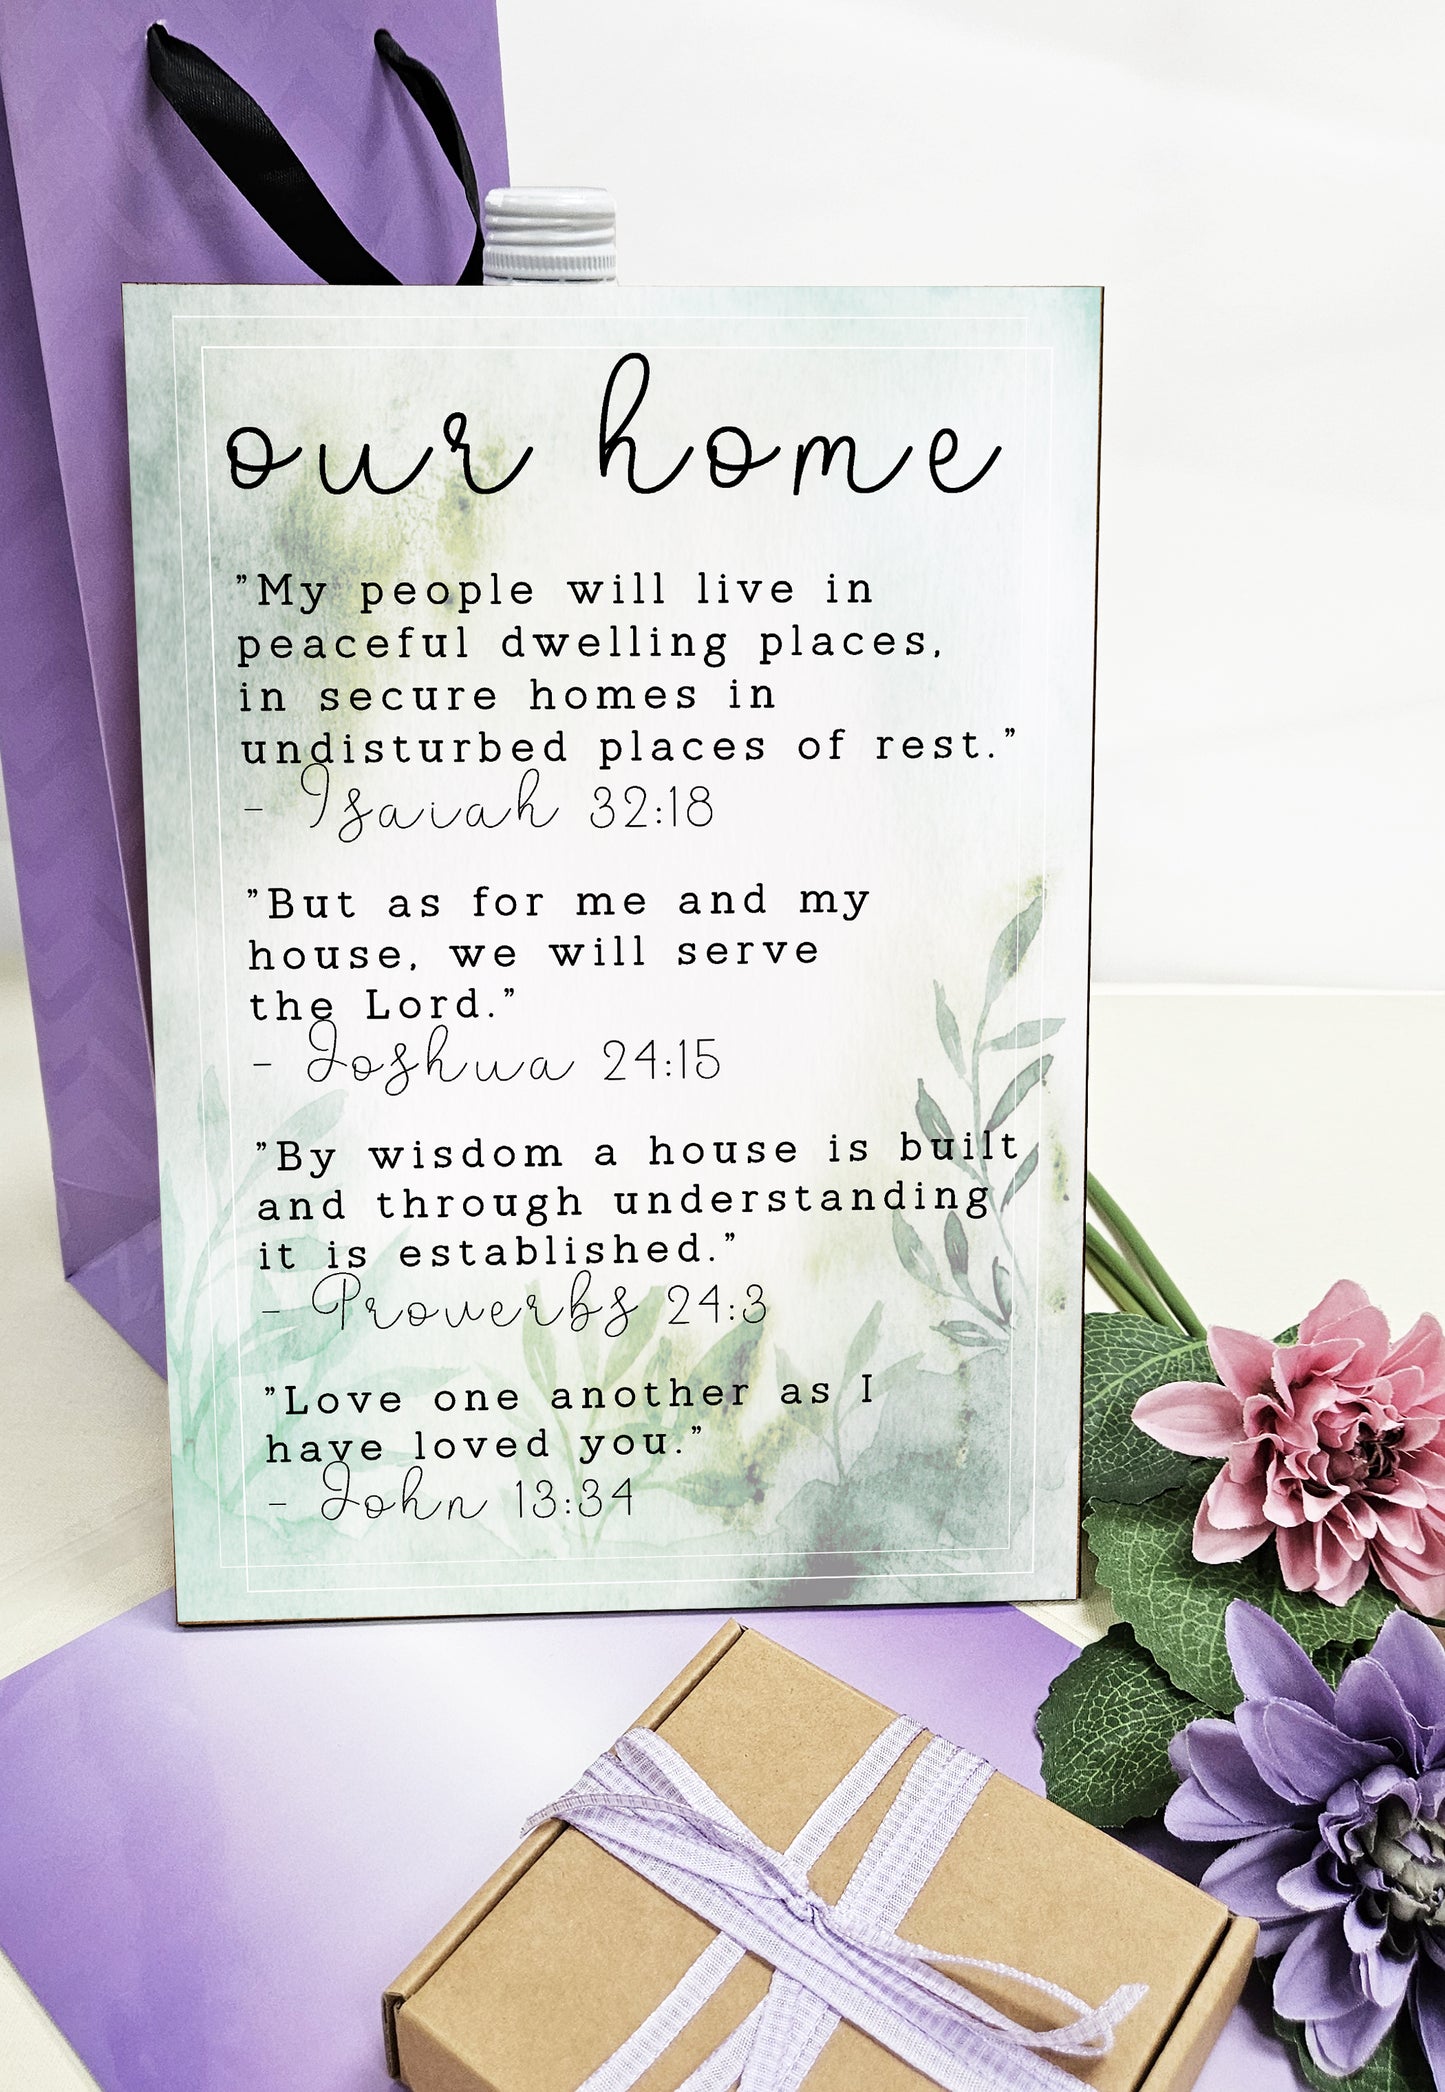 our home
"My people will live in
peaceful dwelling places,
in secure homes in
undisturbed places of rest."
- Isaiah 32:18
"But as for me and my
house, we will serve
the Lord."
- Joshua 24:15
"By wisdom a house is built
and through understanding
it is established."
- Proverbs 24:3
"Love one another as I
have loved you."
- John 13:34